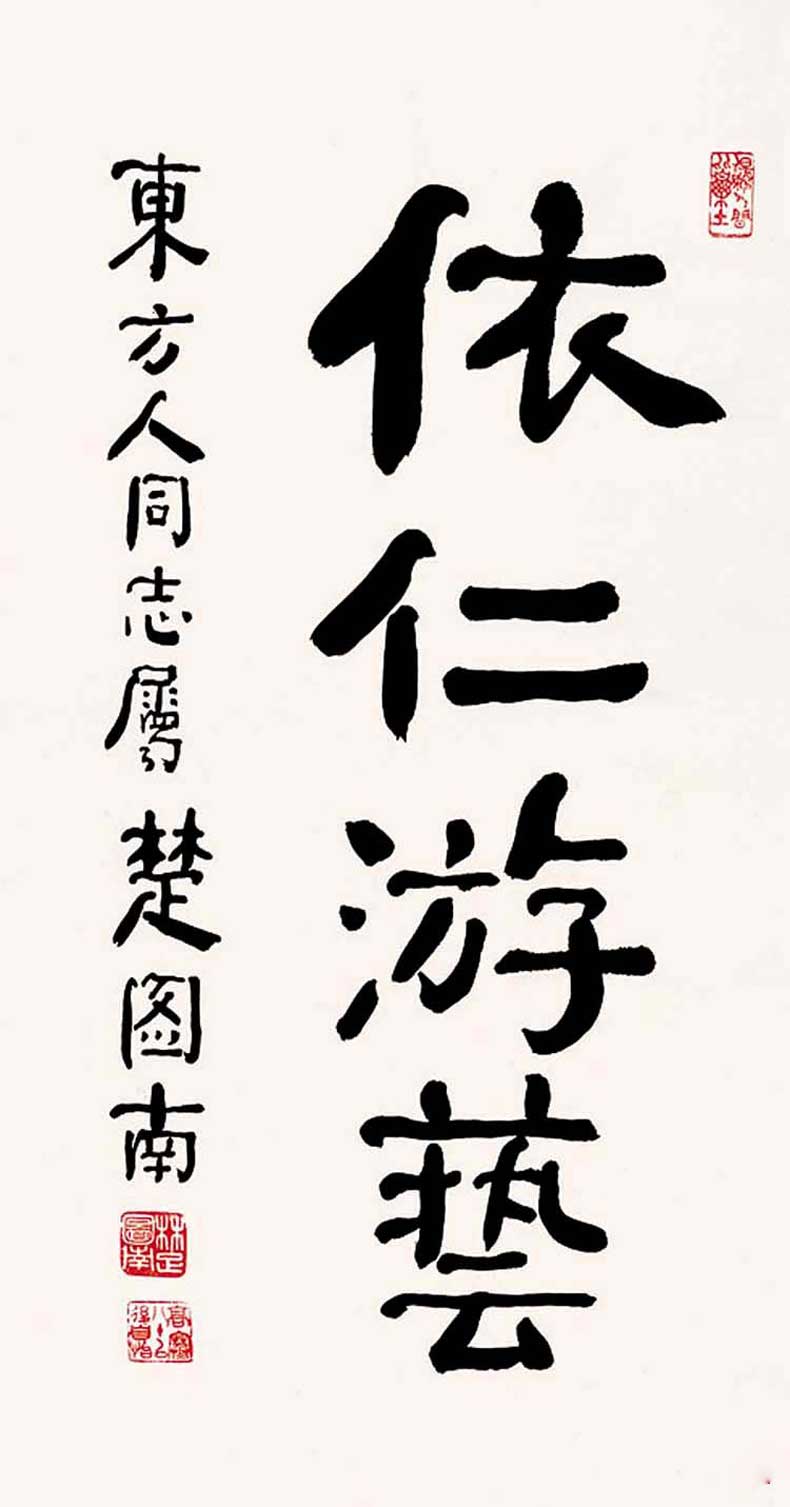 依仁游藝
東方人同志属 楚图南
楚圖南